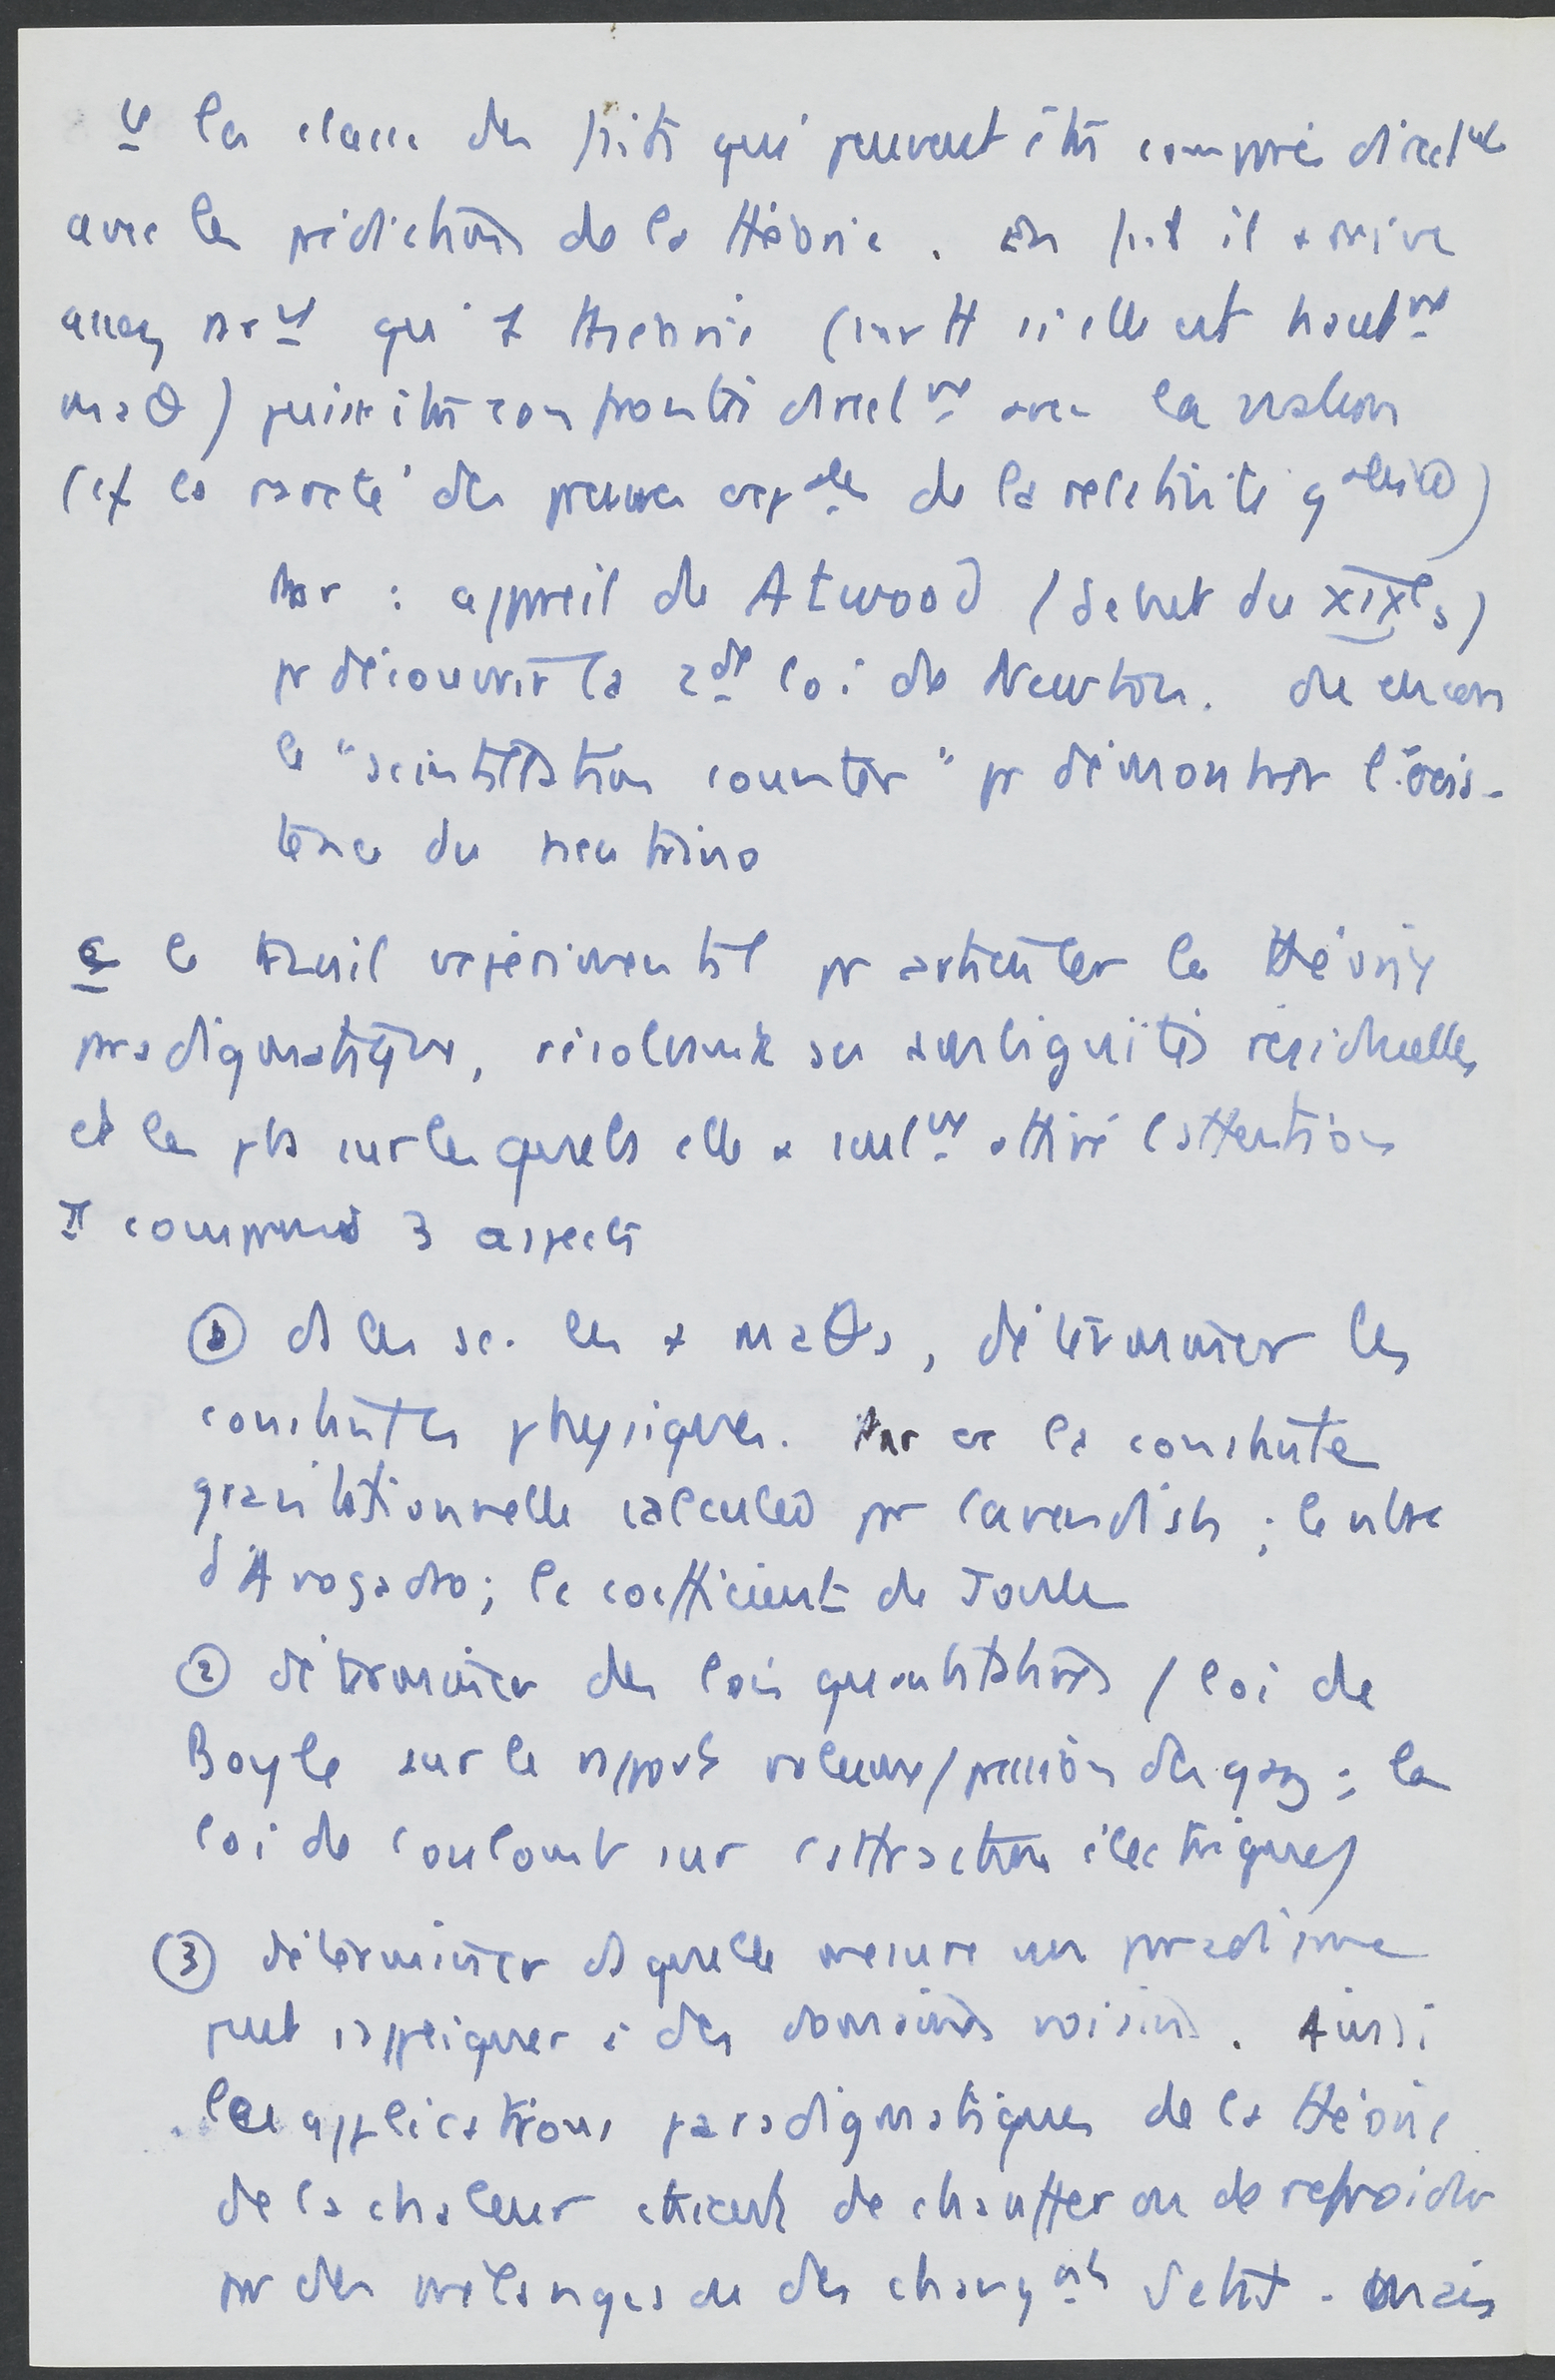 b la classe des faits qui peuvent être comparés directmt
avec les prédictions de la théorie. En fait il arrive
assez rarmt qu'1 théorie (surtt si elle est hautmt
maθ) puisse être confrontée directmt avec la nature
(cf la rareté des preuves expales de la relativité gralisée)
Par : appareil de Atwood (début du XIXe s)
pr découvrir la 2de loi de Newton. Ou encore
le "scintillation counter" pr démontrer l'exis-
tence du neutrino
c le travail expérimental pr articuler la théorie
paradigmatique, résolvant ses ambiguïtés résiduelles
et les pbs sur lesquels elle a seulmt attiré l'attention
Il comprend 3 aspects
① ds les sc. les + maθs, déterminer les
constantes physiques. Par ex la constante
gravitationnelle calculée par Cavendish ; le nbre
d'Avogadro ; le coefficient de Joule
② déterminer des lois quantitatives (loi de
Boyle sur le rapport volume/pression des gaz : la
loi de Coulomb sur l'attraction électrique)
③ déterminer ds quelle mesure un paradigme
peut s'appliquer à des domaines voisins. Ainsi
les applications paradigmatiques de la théorie
de la chaleur étaient de chauffer ou de refroidir
par des mélanges ou des changmts d'état. Mais